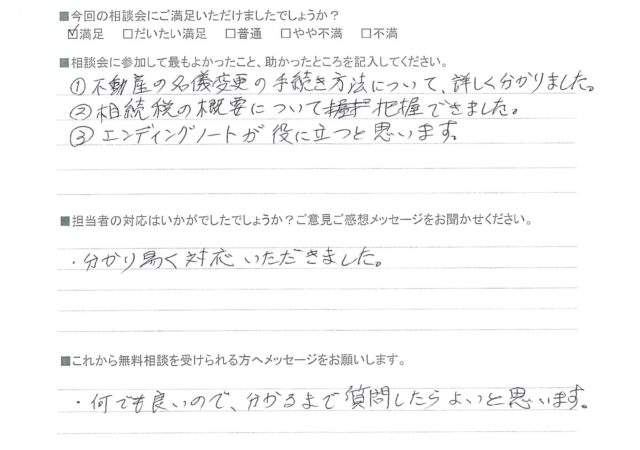 ■今回の相談会にご満足いただけましたでしょうか？
☑満足 □だいたい満足 □普通 □やや不満 □不満
■相談会に参加して最もよかったこと、助かったところを記入してください。
①不動産の名儀変更の手続き方法について、詳しく分かりました。
②相続税の概要について把握できました。
③エンディングノートが役に立つと思います。
■担当者の対応はいかがでしたでしょうか？ご意見ご感想メッセージをお聞かせください。
・分かり易く対応いただきました。
■これから無料相談を受けられる方へメッセージをお願いします。
・何でも良いので、分かるまで質問したらよいと思います。